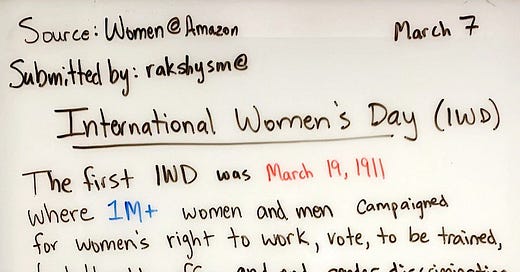 Source: Women@Amazon March 7
Submitted by: rakshysm@
International Women's Day (IWD)
The first IWD was March 19, 1911
where 1M+ women and men campaigned
for women's right to work, vote, to be trained,
and gender discrimination